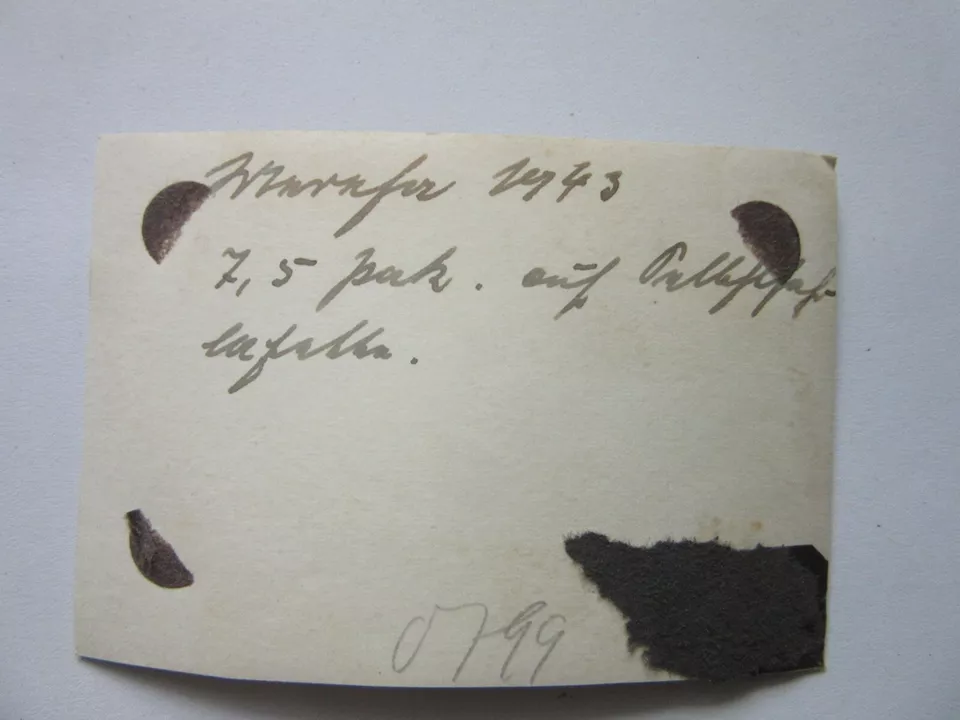 Merefa 1943
7,5 Pak. auf Selbstfahr
lafette.
0799